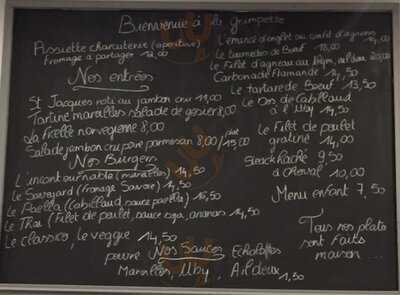 Bienvenue à la Grimpette
Assiette charcuterie (apéritive)
fromage à partager 12,00
Nos entrées
St Jacques roti au jambon cru 19,00
Tartine maroilles salade de gesier 8,00
La ficelle norvegienne 8,00
Salade jambon cru poire parmesan 8,00 / plat 15,00
Nos Burgers
L'incontournable (maroilles) 14,50
Le Savoyard (fromage Savoie) 14,50
Le Paella (Cabillaud, sauce paella) 15,50
Le Thaï (Filet de poulet, sauce soja, ananas) 14,50
Le classico, Le veggie 14,50
L'émincé d'onglet au confit d'oignons 14,00
Le tournedos de Bœuf 18,00
Le Filet d'agneau au thym, 20,00
Carbonade Flamande 14,50
Le tartare de Bœuf 13,50
Le Dos de Cabillaud
à l'Uby 14,50
Le Filet de poulet
gratiné 14,00
Steack haché 9,50
à cheval 10,00
Menu enfant 7,50
Nos Sauces
poivre Echalottes
Maroilles, Uby, Ail doux 1,50
Tous nos plats
sont faits
maison ...